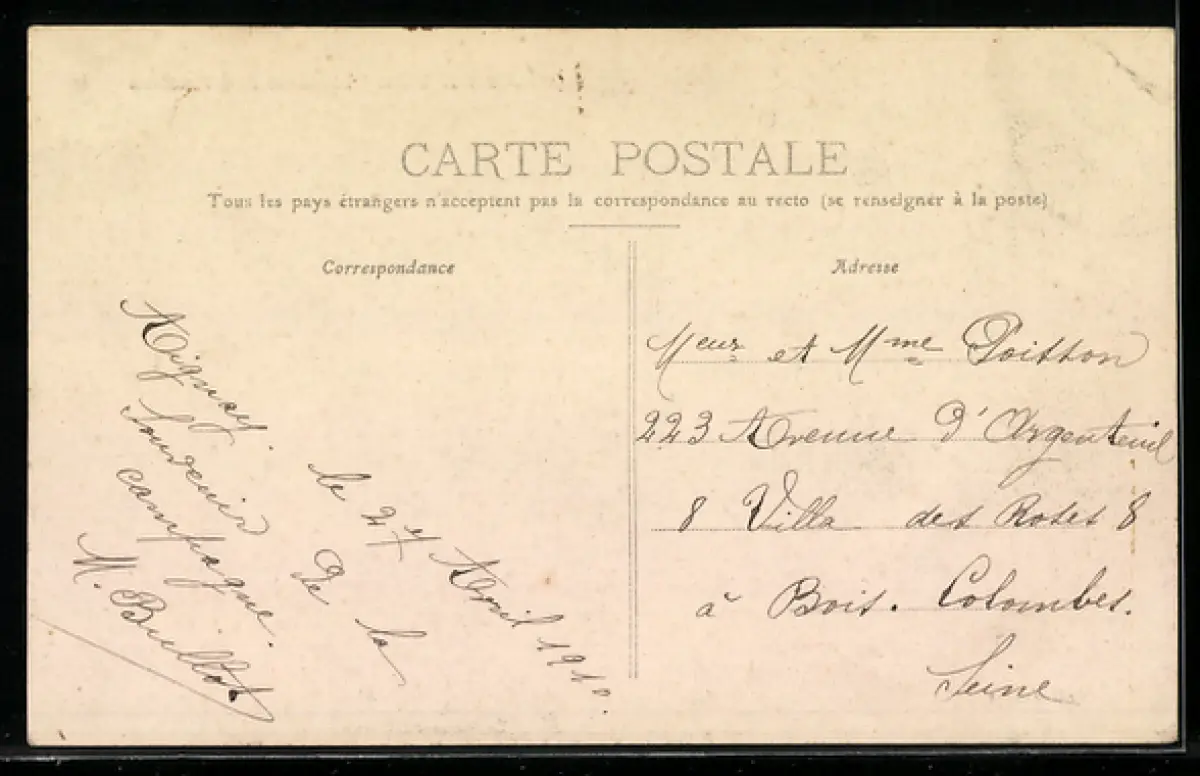 CARTE POSTALE
Tous les pays étrangers n'acceptent pas la correspondance au recto (se renseigner à la poste)
Correspondance
Aignay. le 27 Avril 1910.
Souvenir de la
campagne.
M. Billot
Adresse
Meur et Mme Poitton
223 Avenue d'Argenteuil
8 Villa des Roses 8
à Bois. Colombes.
Seine